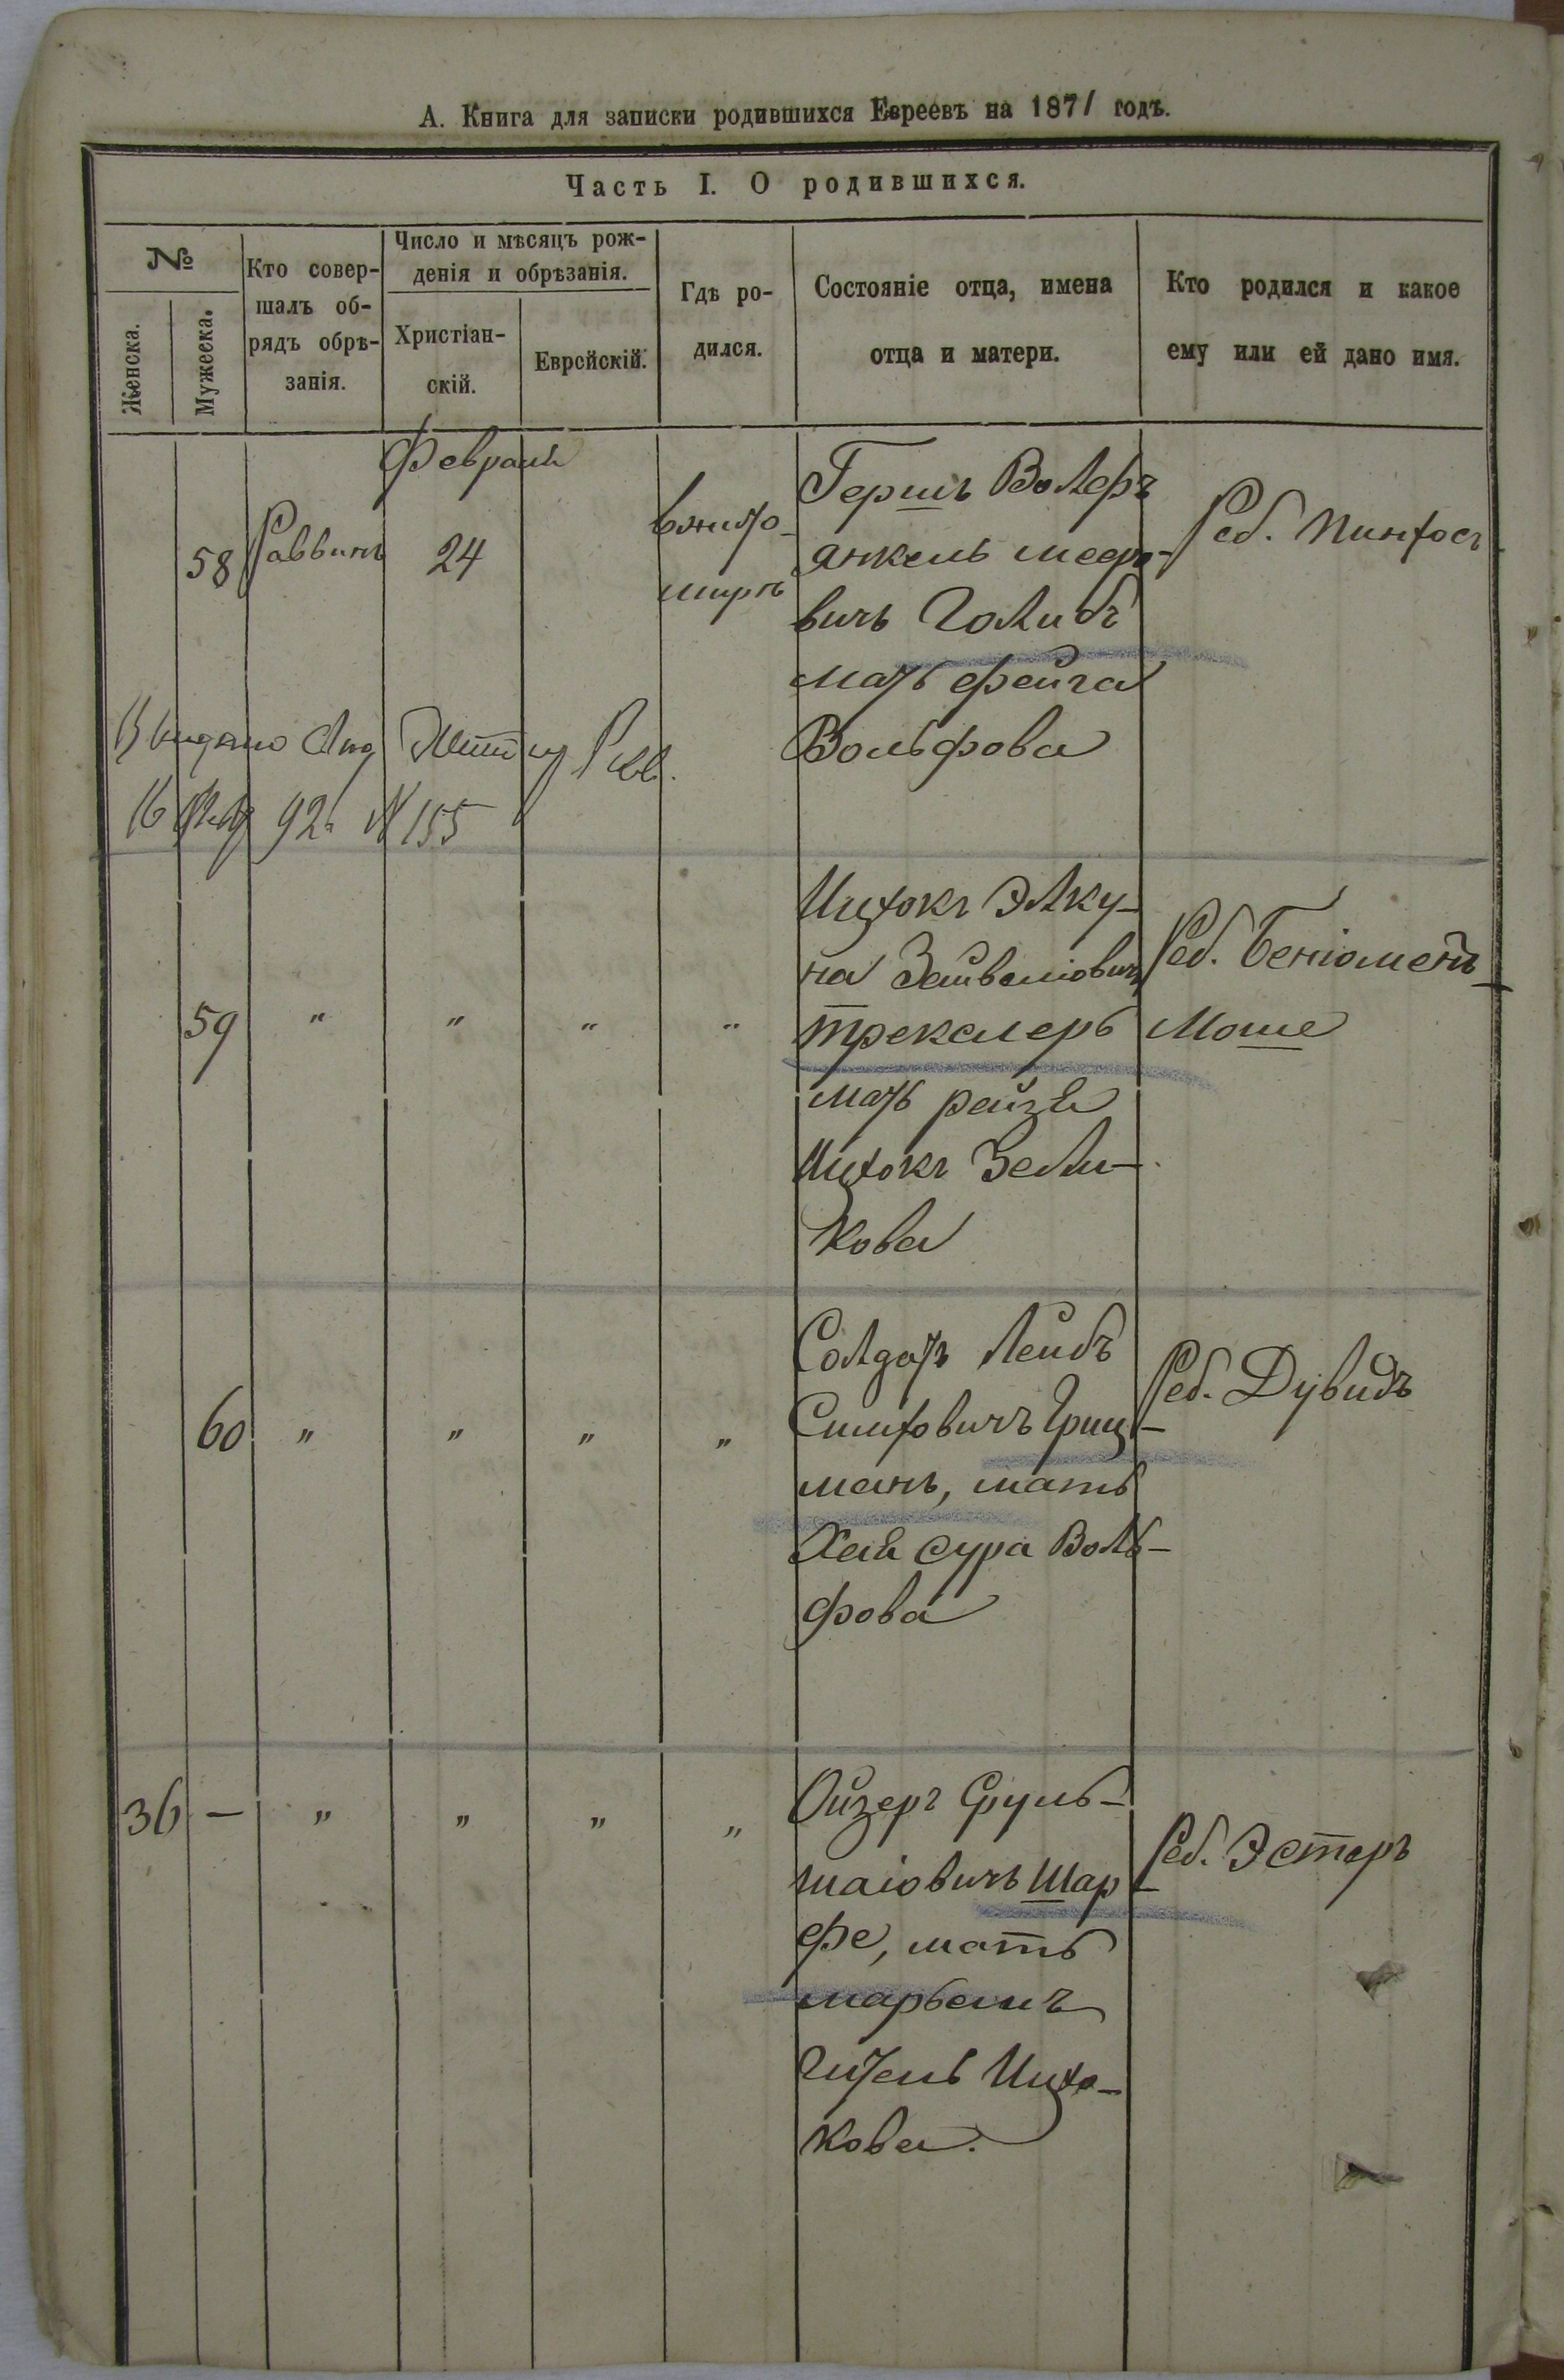 А. Книга для записки родившихся Евреевъ на 1871 годъ.
Часть I. О родившихся.
№
Женска.
Мужеска.
Кто совер-
шалъ об-
рядъ обрѣ-
занія.
Число и мѣсяцъ рож-
денія и обрѣзанія.
Христіан-
скій.
Еврейскій.
Гдѣ ро-
дился.
Состояніе отца, имена
отца и матери.
Кто родился и какое
ему или ей дано имя.
Февраля
58 Раввинъ 24
вжито-
миръ
Гершъ Волфъ
янкель мееро-
вичъ Голибъ
мать фейга
Вольфова
Реб. Пинхосъ
Выдано
16 92 № 155
59 " " " "
Ицхокъ Элку-
на Зайвеліовичъ
трекслеръ
мать рейзя
Ицхокъ Зели-
кова
Реб. Беніоменъ
Моше
60 " " " "
Солдатъ Лейбъ
Симховичъ Гриц-
манъ, мать
Хая сура Воль-
фова
Реб. Дувидъ
36 — " " " "
Ойзеръ Сруль-
шаіовичъ Шар-
фе, мать
марьемъ
гитель Ицхо-
кова.
Реб. Эстеръ